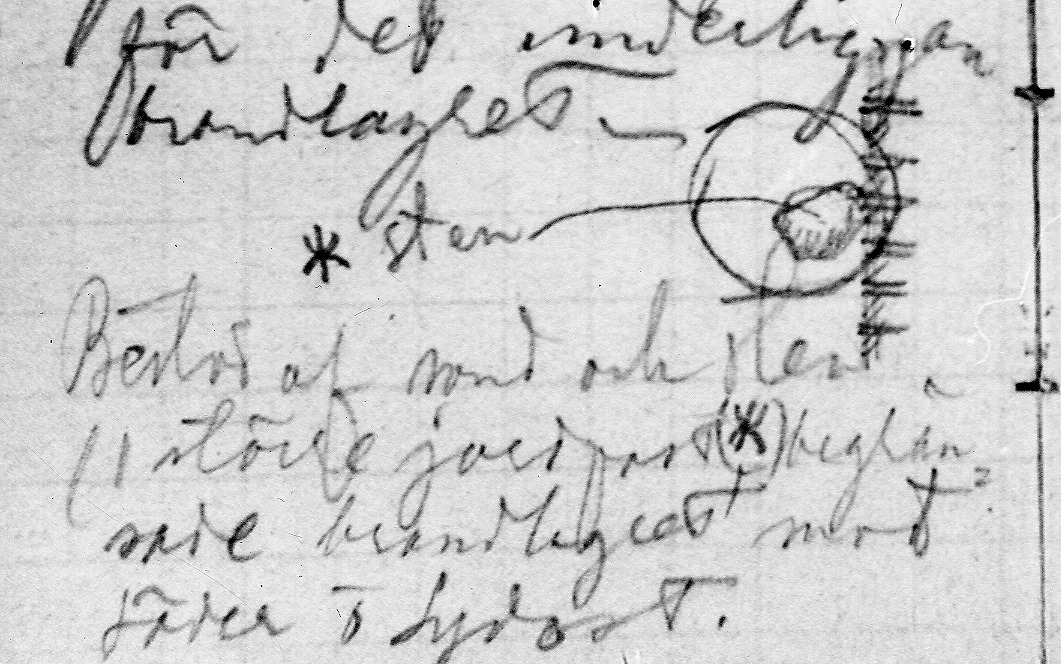 för det underliggan
brandlagret. —
* sten
Bestod af sand och sten
11 större jordfast (*) begrän=
sade brandlagret mot
söder o sydost.